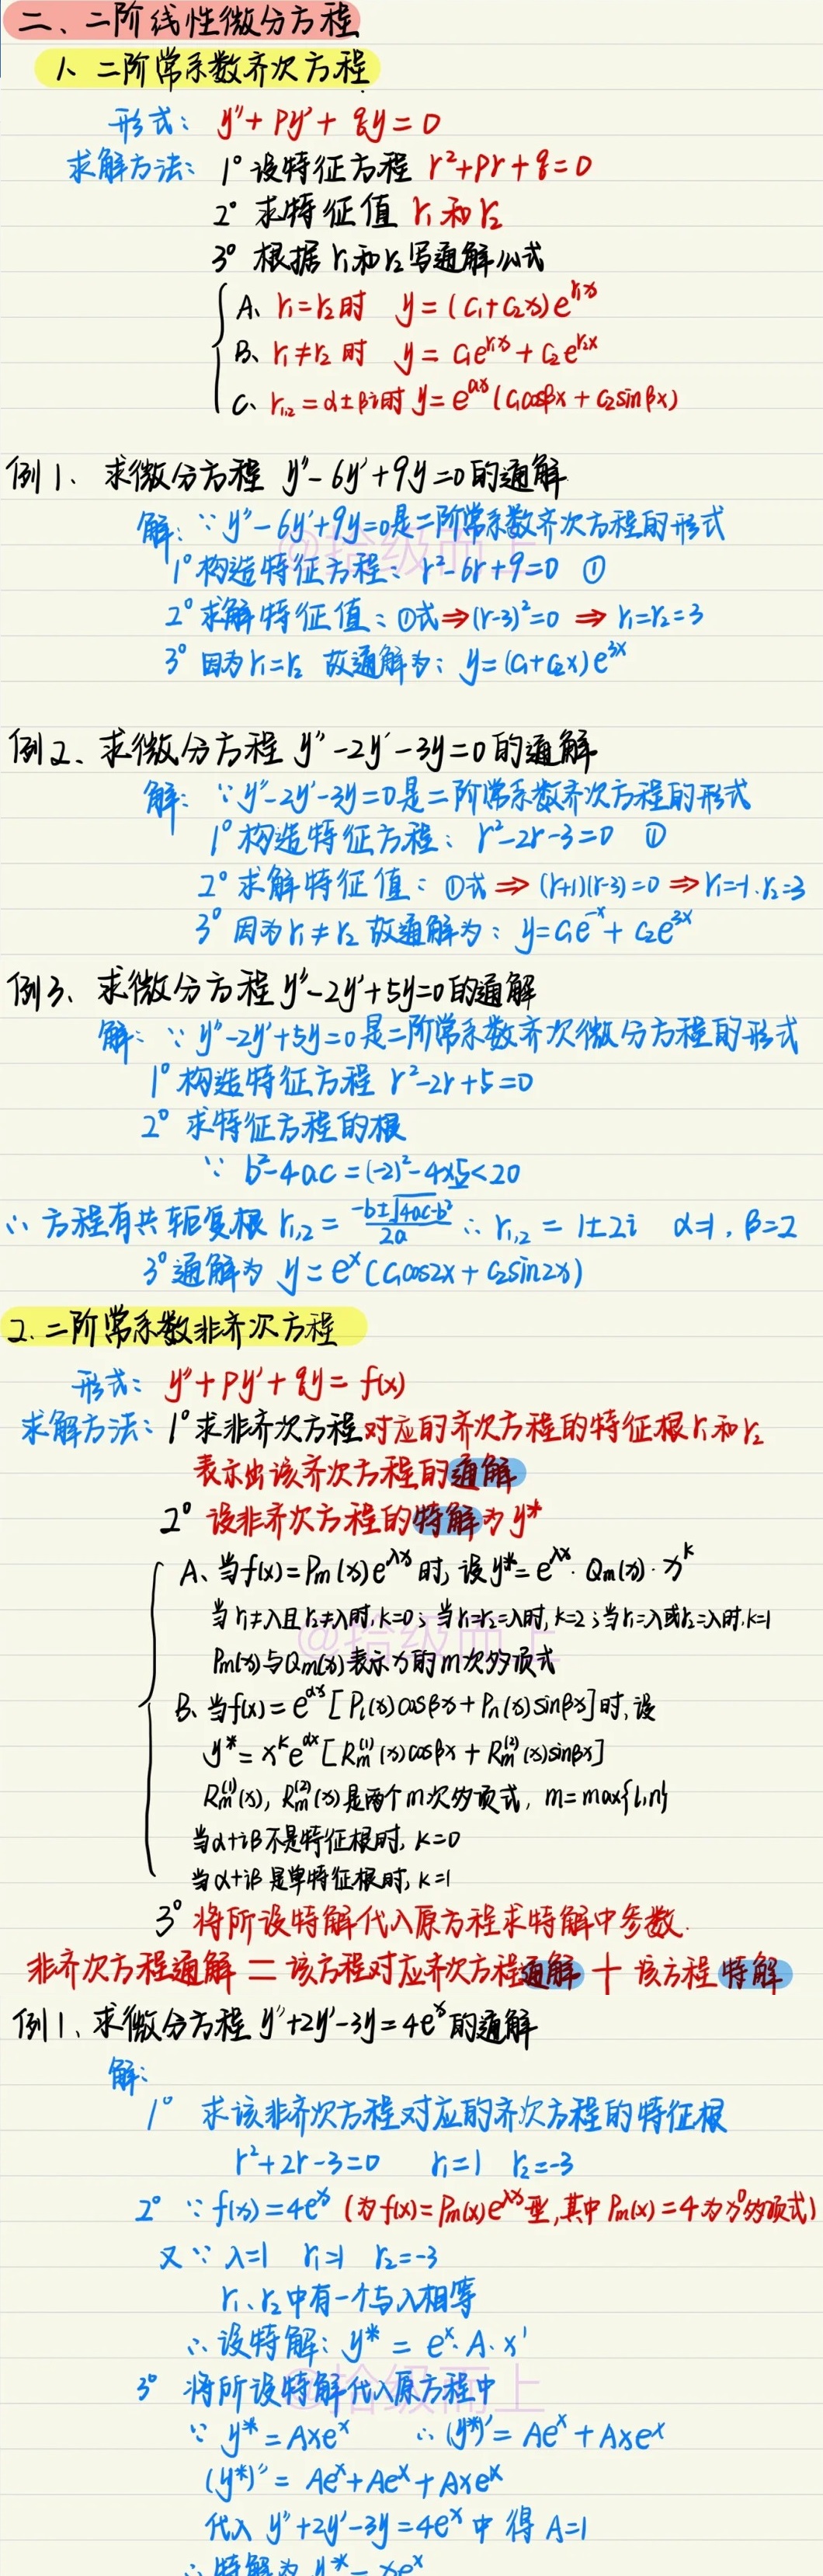 二、二阶线性微分方程
1、二阶常系数齐次方程
形式: y″+py′+qy=0
求解方法: 1° 设特征方程 r²+pr+q=0
2° 求特征值 r₁和r₂
3° 根据r₁和r₂写通解公式
A、r₁=r₂时 y=(c₁+c₂x)e^{r₁x}
B、r₁≠r₂时 y=c₁e^{r₁x}+c₂e^{r₂x}
C、r₁,₂=α±βi时 y=e^{αx}(c₁cosβx+c₂sinβx)
例1、求微分方程 y″-6y′+9y=0的通解
解: ∵y″-6y′+9y=0是二阶常系数齐次方程的形式
1° 构造特征方程: r²-6r+9=0 ①
2° 求解特征值: ①式⇒(r-3)²=0 ⇒ r₁=r₂=3
3° 因为r₁=r₂ 故通解为: y=(c₁+c₂x)e^{3x}
例2、求微分方程 y″-2y′-3y=0的通解
解: ∵y″-2y′-3y=0是二阶常系数齐次方程的形式
1° 构造特征方程: r²-2r-3=0 ①
2° 求解特征值: ①式⇒(r+1)(r-3)=0⇒r₁=-1.r₂=3
3° 因为r₁≠r₂故通解为: y=c₁e^{-x}+c₂e^{3x}
例3、求微分方程y″-2y′+5y=0的通解
解: ∵y″-2y′+5y=0是二阶常系数齐次微分方程的形式
1° 构造特征方程 r²-2r+5=0
2° 求特征方程的根
∵ b²-4ac=(-2)²-4×5<20
∴方程有共轭复根 r₁,₂=\frac{-b±\sqrt{4ac-b²}}{2a} ∴r₁,₂=1±2i α=1,β=2
3° 通解为 y=e^x(c₁cos2x+c₂sin2x)
2.二阶常系数非齐次方程
形式: y″+py′+qy=f(x)
求解方法: 1° 求非齐次方程对应的齐次方程的特征根r₁和r₂
表示出该齐次方程的通解
2° 设非齐次方程的特解为y*
A、当f(x)=Pm(x)e^{λx}时,设y*=e^{λx}·Qm(x)·x^k
当r₁≠λ且r₂≠λ时,k=0;当r₁=r₂=λ时,k=2;当r₁=λ或r₂=λ时.k=1
Pm(x)与Qm(x)表示x的m次多项式
B、当f(x)=e^{αx}[P_l(x)cosβx+P_n(x)sinβx]时,设
y*=x^k e^{αx}[R_m^{(1)}(x)cosβx+R_m^{(2)}(x)sinβx]
R_m^{(1)}(x),R_m^{(2)}(x)是两个m次多项式,m=max{l,n}
当α+iβ不是特征根时,k=0
当α+iβ是单特征根时,k=1
3° 将所设特解代入原方程求特解中参数.
非齐次方程通解=该方程对应齐次方程通解+该方程特解
例1、求微分方程y″+2y′-3y=4e^x的通解
解:
1° 求该非齐次方程对应的齐次方程的特征根
r²+2r-3=0 r₁=1 r₂=-3
2° ∵f(x)=4e^x(为f(x)=Pm(x)e^{λx}型,其中Pm(x)=4为x⁰多项式)
又∵λ=1 r₁=1 r₂=-3
r₁、r₂中有一个与λ相等
∴设特解: y*=e^x·A·x¹
3° 将所设特解代入原方程中
∵y*=Axe^x ∴(y*)′=Ae^x+Axe^x
(y*)″=Ae^x+Ae^x+Axe^x
代入y″+2y′-3y=4e^x中得A=1
∴特解为y*=xe^x
@拾级而上
@拾级而上
@拾级而上